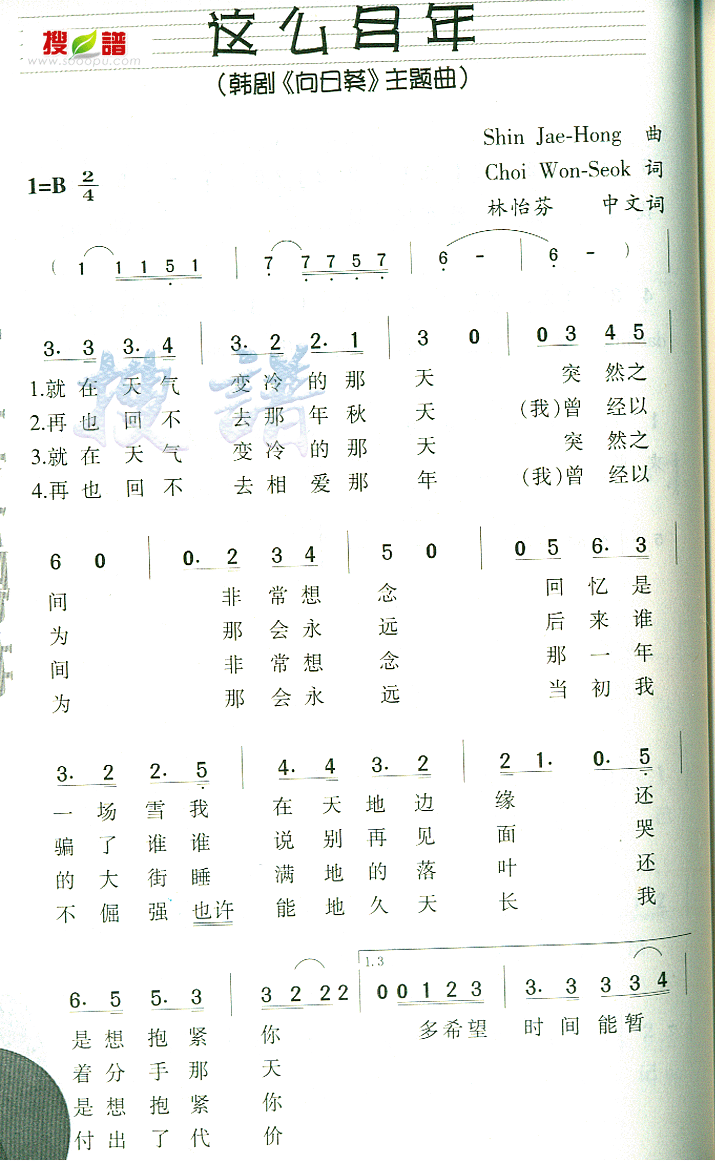 搜譜
www.sooopu.com
这么多年
(韩剧《向日葵》主题曲)
Shin Jae-Hong 曲
1=B 2/4
Choi Won-Seok 词
林怡芬 中文词
( 1 1 1 5 1 | 7 7 7 5 7 | 6 - | 6 - )
3. 3 3. 4 | 3. 2 2. 1 | 3 0 | 0 3 4 5
1.就在天气 变冷的那 天 突然之
2.再也回不 去那年秋 天 (我)曾经以
3.就在天气 变冷的那 天 突然之
4.再也回不 去相爱那 年 (我)曾经以
搜譜
6 0 | 0. 2 3 4 | 5 0 | 0 5 6. 3
间 非常想 念 回忆是
为 那会永 远 后来谁
间 非常想 念 那一年
为 那会永 远 当初我
3. 2 2. 5 | 4. 4 3. 2 | 2 1. | 0. 5
一场雪我 在天地边 缘 还
骗了谁谁 说别再见 面 哭
的大街睡 满地的落 叶 还
不倔强也许 能地久天 长 我
1.3
6. 5 5. 3 | 3 2 2 2 | 0 0 0 1 2 3 | 3. 3 3 3 4
是想抱紧 你 多希望 时间能暂
着分手那 天
是想抱紧 你
付出了代 价